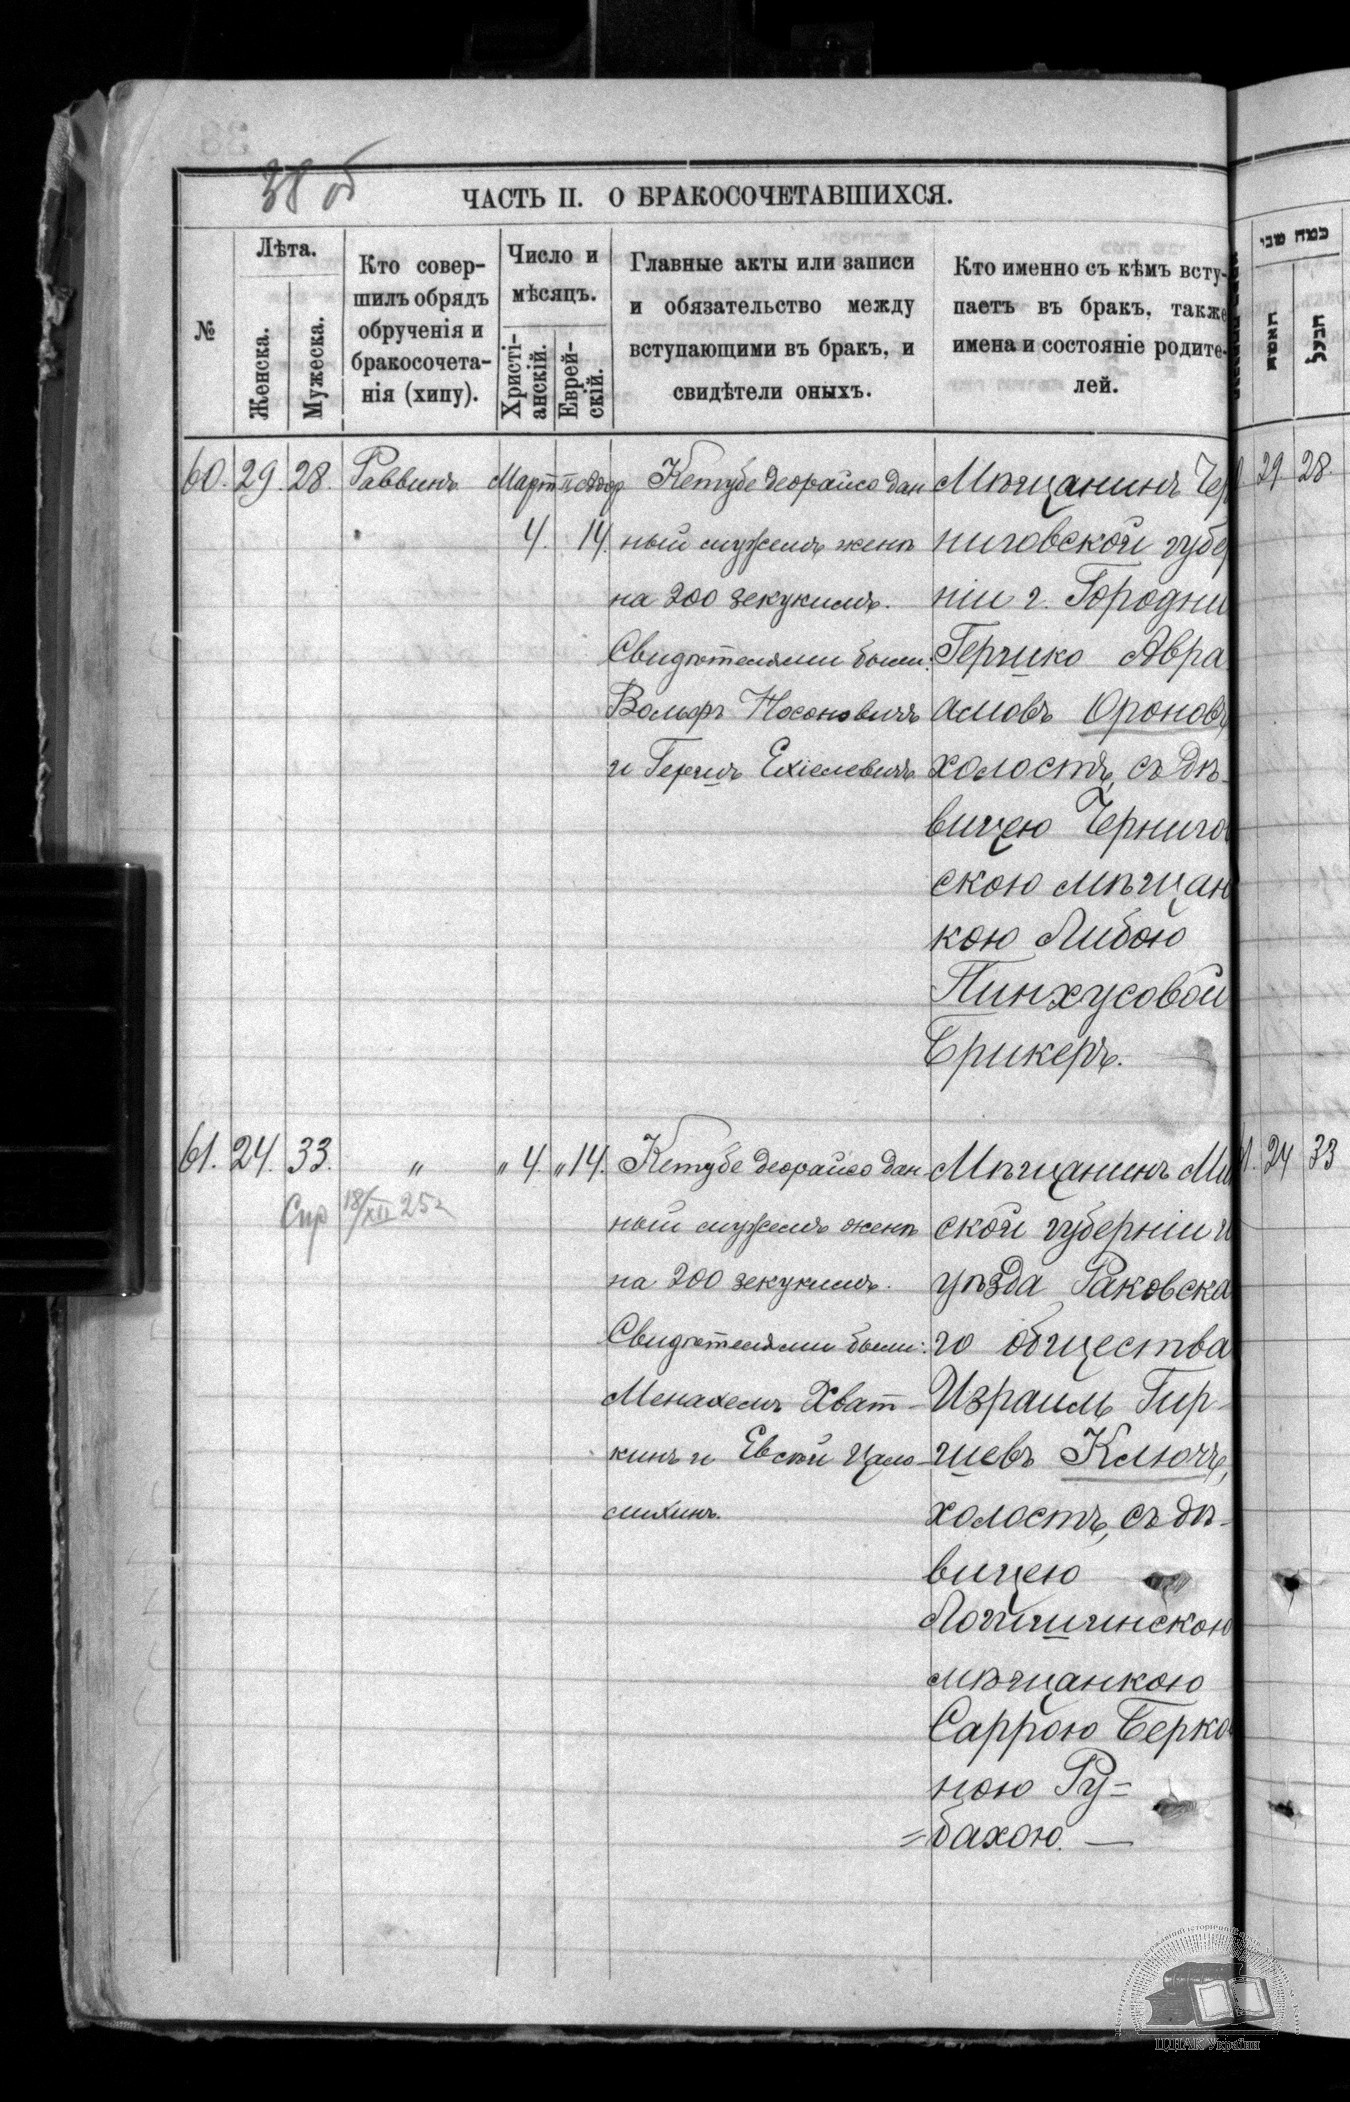 38 об
ЧАСТЬ II. О БРАКОСОЧЕТАВШИХСЯ.
№
Лѣта.
Женска.
Мужеска.
Кто совер-
шилъ обрядъ
обрученія и
бракосочета-
нія (хипу).
Число и
мѣсяцъ.
Христі-
анскій.
Еврей-
скій.
Главные акты или записи
и обязательство между
вступающими въ бракъ, и
свидѣтели оныхъ.
Кто именно съ кѣмъ всту-
паетъ въ бракъ, также
имена и состояніе родите-
лей.
60. 29. 28. Раввинъ Март
4. 14.
Кетубе деорайсо дан
ный мужемъ женѣ
на 200 зекукимъ.
Свидѣтелями были:
Вольфъ Носоновичъ
и Гершъ Ехіелевичъ
Мѣщанинъ Чер
ниговской губе
ніи г. Городни
Гершко Авра
амовъ Ороновъ,
холостъ, съ дѣ-
вицею Черниго
скою мѣщан
кою Либою
Пинхусовой
Брикеръ.
61. 24. 33. " " 4. " 14.
Спр 18/XII 25 г.
Кетубе деорайсо дан
ный мужемъ женѣ
на 200 зекукимъ.
Свидѣтелями были:
Менахемъ Хват-
кинъ и Евсѣй Цало-
михинъ.
Мѣщанинъ Ми
ской губерніи и
уѣзда Раковска
го общества
Израиль Гир-
шевъ Ключъ,
холостъ, съ дѣ-
вицею
Логишинскою
мѣщанкою
Саррою Берко
ною Ру=
=бахою. —
כמה שני
האשה
הבעל
29 28.
24 33
ЦДІАК України